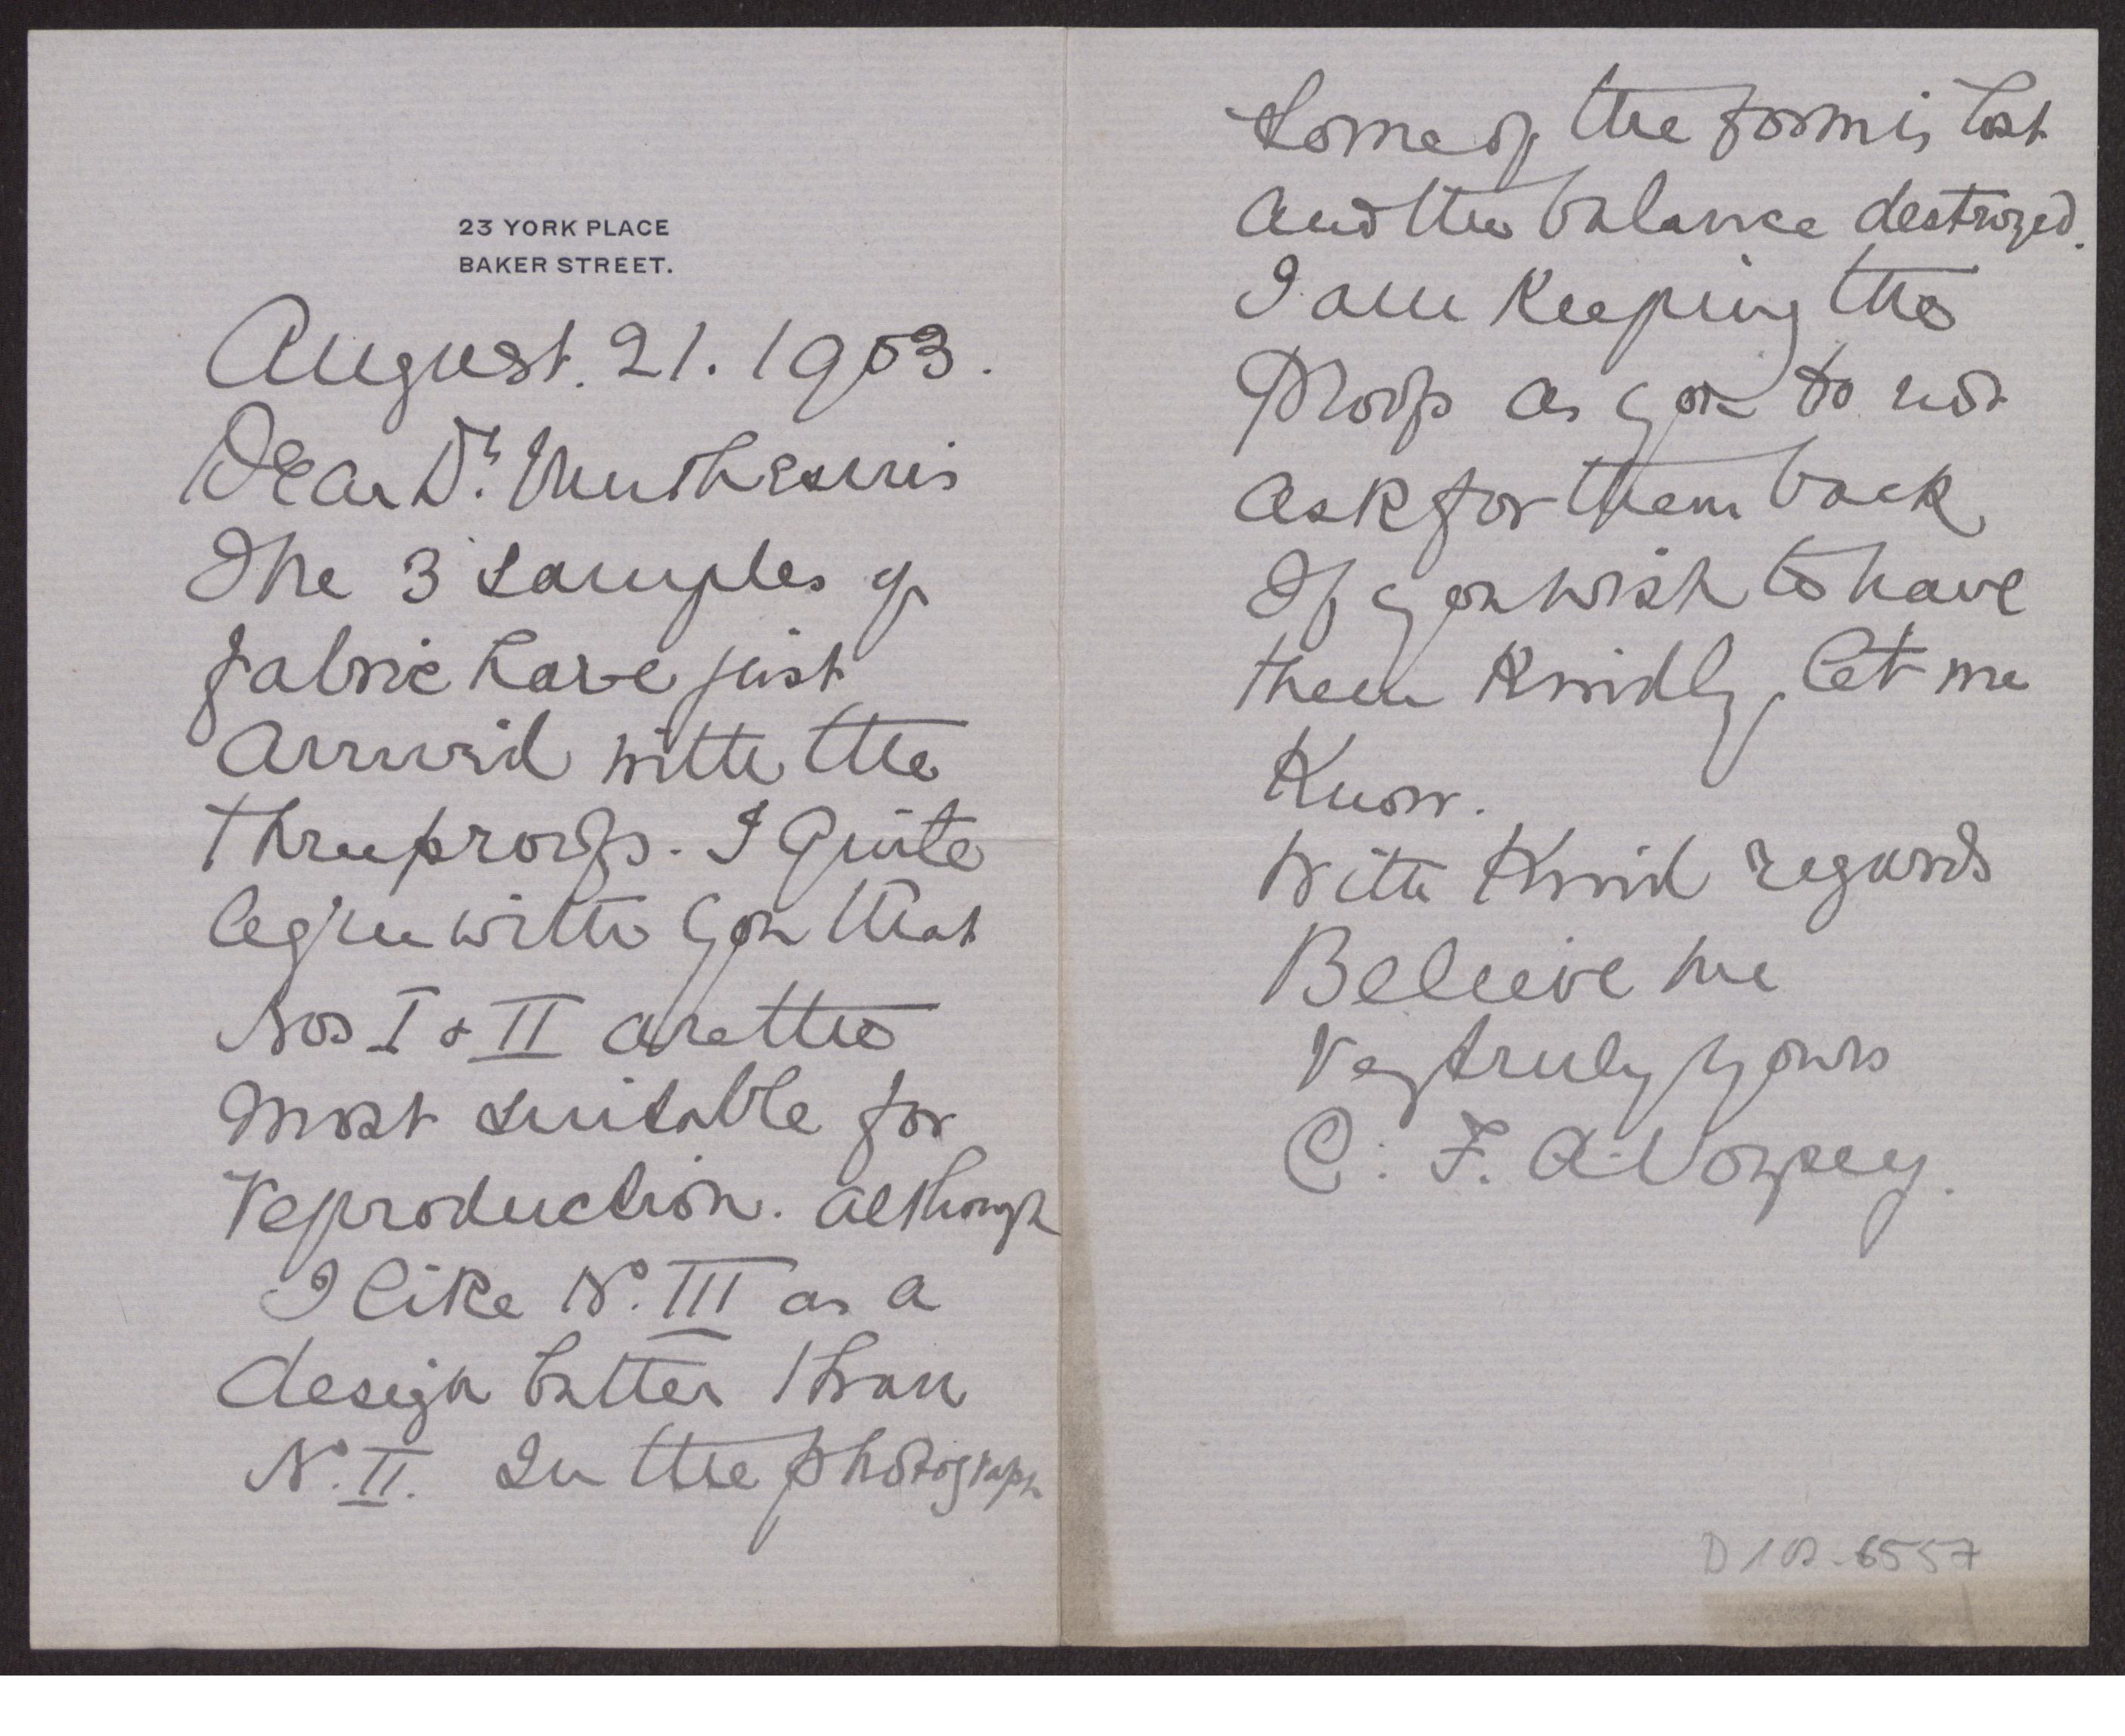 23 YORK PLACE
BAKER STREET.
August. 21. 1903.
Dear Dr. Muthesius
The 3 samples of
fabric have just
arrived with the
three proofs. I quite
agree with you that
Nos I & II are the
most suitable for
reproduction. although
I like No. III as a
design better than
No. II. In the photograph
some of the form is lost
and the balance destroyed.
I am keeping the
Proofs as you do not
ask for them back
If you wish to have
them Kindly let me
Know.
With Kind regards
Believe me
Very truly yours
C. F. A. Voysey.
D 102-6557